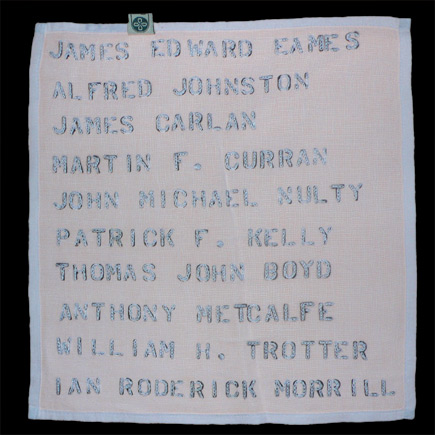 JAMES EDWARD EAMES
ALFRED JOHNSTON
JAMES CARLAN
MARTIN F. CURRAN
JOHN MICHAEL NULTY
PATRICK F. KELLY
THOMAS JOHN BOYD
ANTHONY METCALFE
WILLIAM H. TROTTER
IAN RODERICK MORRILL